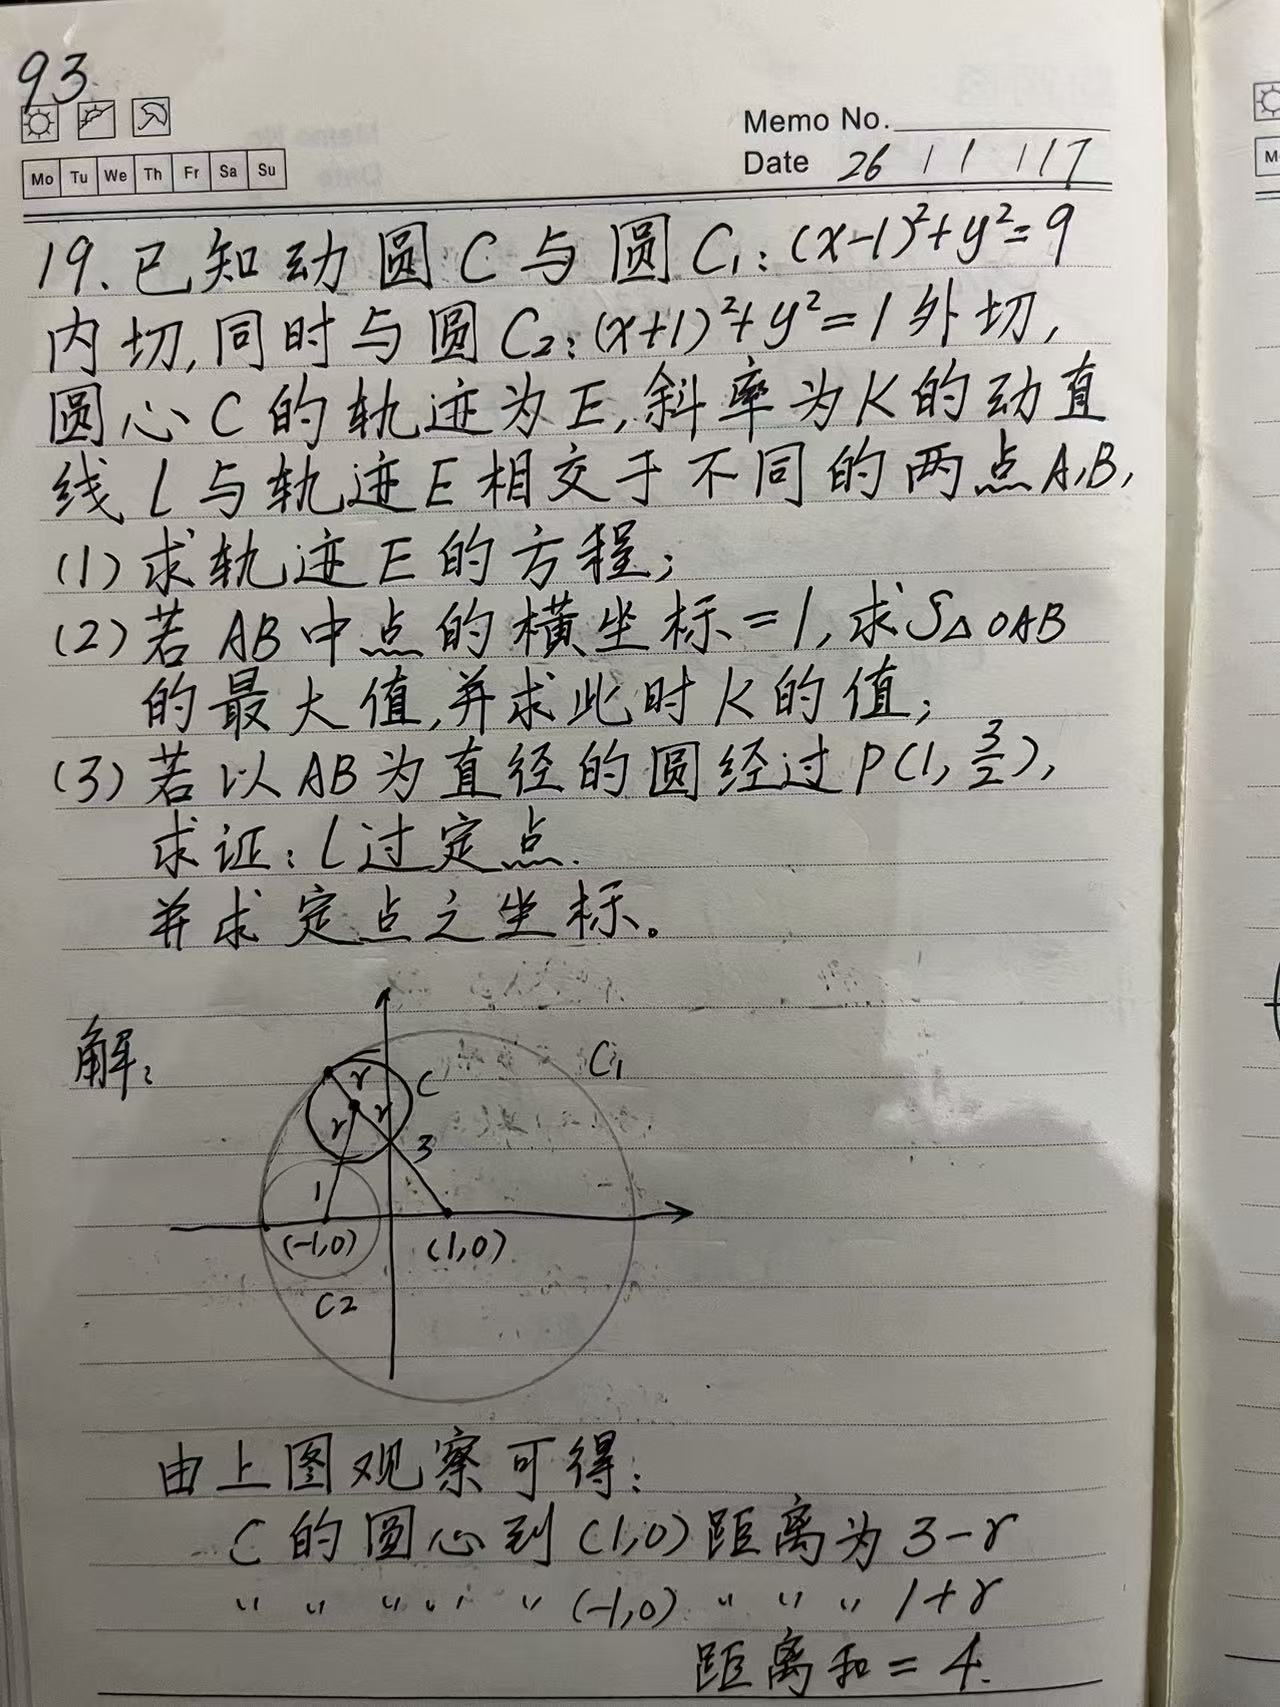 93
Memo No.
Mo Tu We Th Fr Sa Su
Date 26 / 1 / 17
19. 已知动圆C与圆C₁: (x-1)²+y²=9
内切,同时与圆C₂:(x+1)²+y²=1外切,
圆心C的轨迹为E,斜率为K的动直
线l与轨迹E相交于不同的两点A,B,
(1)求轨迹E的方程;
(2)若AB中点的横坐标=1,求S△OAB
的最大值,并求此时K的值;
(3)若以AB为直径的圆经过P(1,3/2),
求证:l过定点.
并求定点之坐标。
解:
C₁
r
C
r
r
3
1
(-1,0)
(1,0)
C2
由上图观察可得:
C的圆心到(1,0)距离为3-r
〃 〃 〃 〃 〃 (-1,0) 〃 〃 〃 1+r
距离和=4.